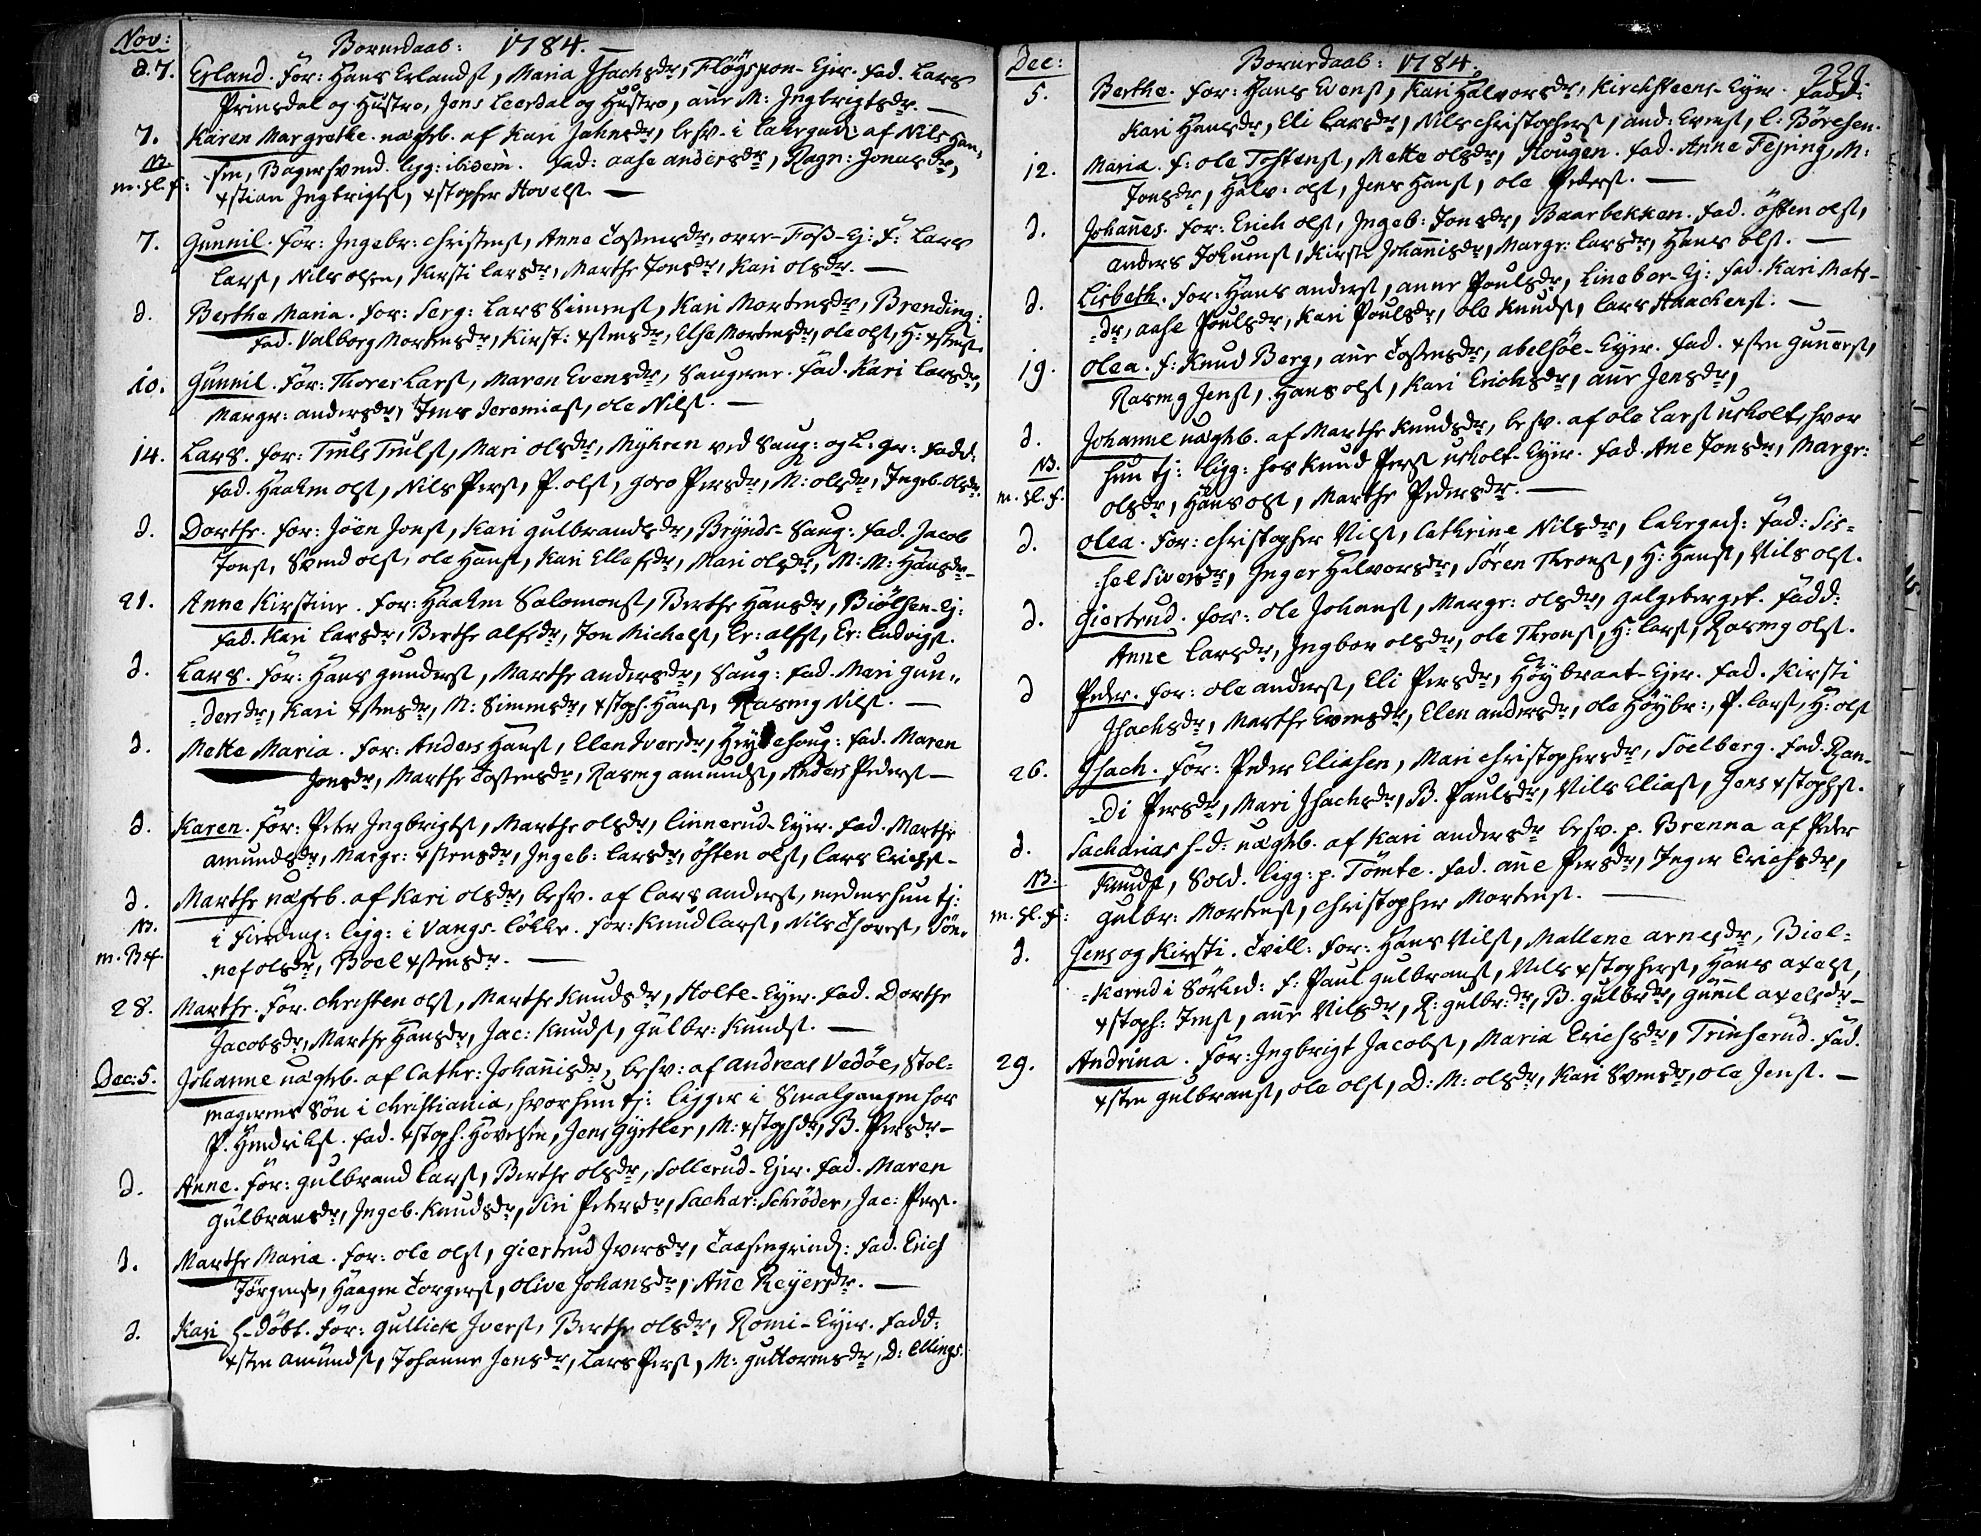 Nov: Bornedaab: 1784.
d. 7. Erland. For: Hans Erlandsøn, Maria Isachsdr, Fløyspon-Ejer. fad. Lars
Prinsdal og Hustro, Jens Leerdal og Hustro, ane M: Ingbrigtsdr.
7. Karen Margrethe. uægteb. af Kari Jahnsdr, besv. i Lakegad: af Nils Han-
NB. sen, Bagersvend. ligg: ibidem. fad: aase andersdr, Ragn: Jonasdr,
m. gl. f: xstian Ingbrigts, xstopher Hovels.
7. Gunnil. For: Ingebr: Christens, Anne Tostensdr, ovre-Foss-Ej: F: Lars
Lars, Nils olsen, Kirsti Larsdr, Marthe Jonsdr, Kari olsdr.
d. Berthe Maria. For: Serg: Lars Simens, Kari Mortensdr, Brending:
fad. Valborg Mortensdr, Kirst: xstensdr, Else Mortensdr, ole ols, H: xstens.
10. Gunnil. For: Thorer Lars, Maren Evensdr, Saugerne. Fad. Kari Larsdr,
Margr: andersdr, Jens Jeremias, ole Nils.
14. Lars. For: Truls Truls, Mari olsdr, Myhren ved Saug: og L: gr: fadd:
fad. Haaken ols, Nils Pers, P. ols, goro Persdr, M: olsdr, Ingeb. olsdr.
d. Dorthe. For: Jöen Jons, Kari gulbrandsdr, Brynds-Saug: fad. Jacob
Jons, Svend ols, ole Hans, Kari Ellefsdr, Mari olsdr, M: M: Hansdr
21. Anne Kirstine. For: Haaken Salomons, Berthe Hansdr, Biölsen-Ej:
fad. Kari Larsdr, Berthe alfsdr, Jon Michels, Er: alfs, Er: Ludvigs.
d. Lars. For: Hans gunders, Marthe andersdr, Saug: fad. Mari gun-
dersdr, Kari xstensdr, M: Simensdr, xstoph. Hans, Rasmg Nils.
d. Mette Maria. For: Anders Hans, Elen Iversdr, fad. Maren
Jonsdr, Marthe Tostensdr, Rasmg amunds, Anders Peders
d. Karen. For: Peter Ingbrigts, Marthe olsdr, Linnerud-Eyer. fad. Marthe
amundsdr, Margr: xstensdr, Ingeb: Larsdr, östen ols, Lars Erichs
d. Marthe uægteb. af Kari olsdr, besv. af Lars anders, medens hun tj:
NB. i Fierding: ligg: i Vangs-Lökke. For: Knud Lars, Nils Thores, Sön-
m. Bet. nef olsdr, Boel xstensdr.
28. Marthe. For. Christen ols, Marthe Knudsdr, Holte-Eyer. fad. Dorthe
Jacobsdr, Marthe Hansdr, Jac: Knuds, Gulbr: Knuds.
Dec: 5. Johanne uægteb. af Cathr: Johannisdr, besv: af Andreas Vedöe, Stol-
magerens Sön i Christiania, hvor hun tj: ligger i Smalgangen hos
P. Hendriks. fad. xstoph. Hovelsen, Jens Gyrtler, M: xstophdr, B. Persdr
d. Anne. For: gulbrand Lars, Berthe olsdr, Sollerud-Ejer. fad. Maren
Gulbransdr, Ingeb. Knudsdr, Siri Petersdr, Sachar: Schröder, Jac: Pers.
d. Marthe Maria. For: ole ols, giertrud Iversdr, Taasengrind: fad. Erich
Jörgens, Haagen Torgers, olive Johansdr, Ane Reyersdr.
d. Kari h-döbt. For: gullick Ivers, Berthe olsdr, Romi-Eyer. fadd:
xsten amunds, Johanne Jensdr, Lars Pers, M: guttormsdr, D: Ellings:
Dec: Bornedaab: 1784. 228.
5. Berthe. For: Hans Evens, Kari Halvorsdr, Kirchsteens-Eyer. fadd:
Kari Hansdr, Eli Larsdr, Nils Christophers, And: Evens, L: Böresen.
12. Maria. f: ole Tostens, Mette olsdr, Hougen. fad. Anne Fejring, M:
Jonsdr, Halv: ols, Jens Hans, ole Peders.
d. Johannes. For: Erich ols, Ingeb: Jonsdr, Baarbekken. fad. östen ols,
anders Jokums, Kirsti Johannisdr, Margr: Larsdr, Hans ols.
d. Lisbeth. For: Hans anders, anne Poulsdr, Linebor-Ej: fad. Kari Mats-
dr, aase Poulsdr, Kari Poulsdr, ole Knuds, Lars Haachens.
19. Olea. f: Knud Berg, ane Tostensdr, abelsöe-Eyer. fad. xsten gunners,
Rasmg Jens, Hans ols, Kari Erichsdr, ane Jensdr,
d. Johanne uægteb. af Marthe Knudsdr, besv. af ole Lars ursholt, hvor
NB. hun tj: ligg: hos Knud Pers ursholt-Eyer. fad. Ane Jonsdr, Margr:
m. gl. f. olsdr, Hans ols, Marthe Pedersdr.
d. Olea. For: Christopher Nils, Cathrine Nilsdr, Lakegad: fad: Sis-
sel Siversdr, Inger Halvorsdr, Sören Throns, H: Hans, Nils ols.
d. Giertrud. For: ole Johans, Margr: olsdr, Galgeberget. fadd:
Anne Larsdr, Ingbor olsdr, ole Throns, H: Lars, Rasmg ols.
d Peder. For: ole anders, Eli Persdr, Höybraat-Ejer. fad. Kirsti
Isachsdr, Marthe Evensdr, Elen andersdr, ole Höybr:, P. Lars, H: ols
26. Isach. For: Peder Eliasen, Mari Christophersdr, Soelberg. fad. Ran-
di Persdr, Mari Isachsdr, B. Paulsdr, Nils Elias, Jens xstophs.
d. Sacharias h-d: uægteb. af Kari andersdr besv. p. Brenna af Peder
NB. Knuds, Sold. ligg: p. Tömte. fad. ane Persdr, Inger Erichsdr,
m. gl. f: Gulbr: Mortens, Christopher Mortens.
d. Jens og Kirsti. Tvill: For: Hans Nils, Mallene arnesdr, Biel-
kerud i Sörked: f: Paul gulbrans, Nils xstophers, Hans axels,
xstoph: Jens, ane Nilsdr, R: gulbr:dr, B. gulbrdr, Gunnil axelsdr
29. Andrina. For: Ingbrigt Jacobs, Maria Erichsdr, Trinserud. fad.
xsten gulbrans, ole ols, D: M: olsdr, Kari Svensdr, ole Jens.